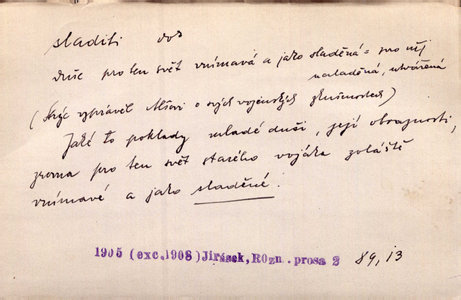 sladiti dok
duše pro ten svět vnímavá a jako sladěná = pro něj
naladěná, utvářená
(Strýc vyprávěl Alšovi o svých vojenských zkušenostech)
Jaké to poklady mladé duši, její obraznosti,
zrovna pro ten svět starého vojáka zvláště
vnímavé a jako sladěné.
1905 (exc.1908) Jirásek, Rozn. prosa 2 89,13